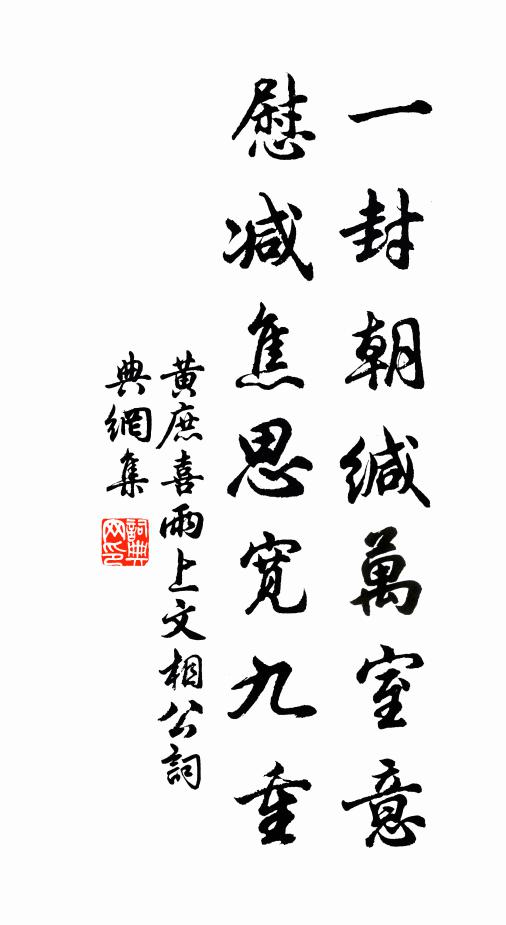 一封朝緘萬室意
慰減焦思寬九重
黃庶喜雨上文相公詞
典網集
詞典網印